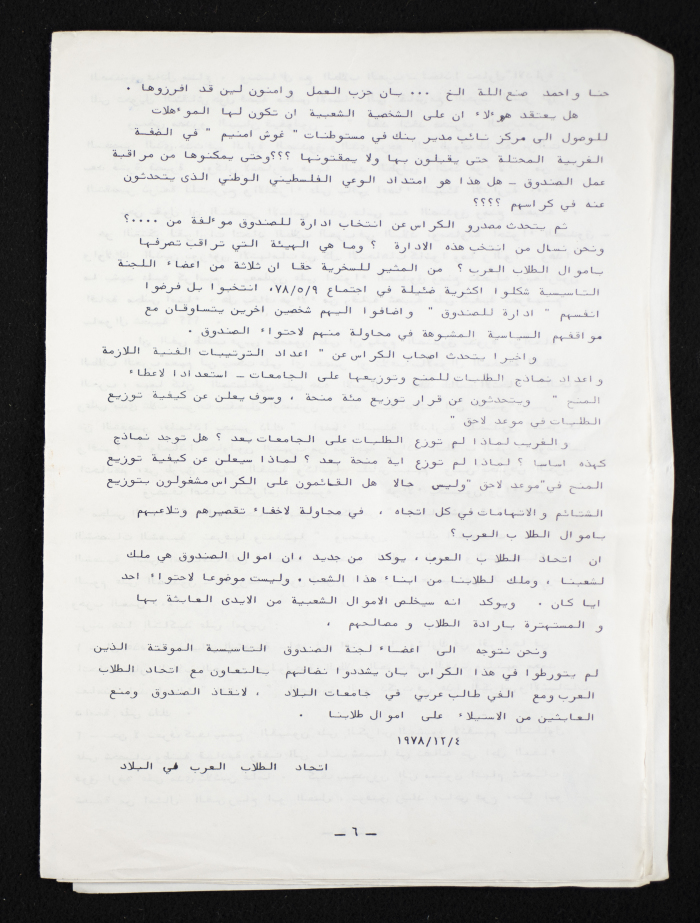 حنا واحمد صنع الله الخ ... بان حزب العمل وامنون لين قد افرزوها .
هل يعتقد هوءلاء ان على الشخصية الشعبية ان تكون لها الموءهلات
للوصول الى مركز نائب مدير بنك في مستوطنات " غوش امنيم " في الضفة
الغربية المحتلة حتى يقبلون بها ولا يمقتونها ؟؟؟وحتى يمكنوها من مراقبة
عمل الصندوق - هل هذا هو امتداد الوعي الفلسطيني الوطني الذى يتحدثون
عنه في كراسهم ؟؟؟؟
ثم يتحدث مصدرو الكراس عن انتخاب ادارة للصندوق موءلفة من ....؟
ونحن نسال من انتخب هذه الادارة ؟ وما هي الهيئة التي تراقب تصرفها
باموال الطلاب العرب ؟ من المثير للسخرية حقا ان ثلاثة من اعضاء اللجنة
التاسيسية شكلوا اكثرية ضئيلة في اجتماع ٧٨/٥/٩، انتخبوا بل فرضوا
انفسهم " ادارة للصندوق " واضافوا اليهم شخصين اخرين يتساوقان مع
مواقفهم السياسية المشبوهة في محاولة منهم لاحتواء الصندوق .
واخيرا يتحدث اصحاب الكراس عن " اعداد الترتيبات الفنية اللازمة
واعداد نماذج الطلبات للمنح وتوزيعها على الجامعات - استعدادا لاعطاء
المنح " ويتحدثون عن قرار توزيع مئة منحة ، وسوف يعلن عن كيفية توزيع
الطلبات في موعد لاحق "
والغريب لماذا لم توزع الطلبات على الجامعات بعد ؟ هل توجد نماذج
كهذه اساسا ؟ لماذا لم توزع اية منحة بعد ؟ لماذا سيعلن عن كيفية توزيع
المنح في "موعد لاحق "وليس حالا هل القائمون على الكراس مشغولون بتوزيع
الشتائم والاتهامات في كل اتجاه ، في محاولة لاخفاء تقصيرهم وتلاعبهم
باموال الطلاب العرب ؟
ان اتحاد الطلاب العرب، يوكد من جديد ،ان اموال الصندوق هي ملك
لشعبنا ، وملك لطلابنا من ابناء هذا الشعب ، وليست موضوعا لاحتواء احد
ايا كان . ويوكد انه سيخلص الاموال الشعبية من الايدى العابثة بها
و المستهترة بارادة الطلاب و مصالحهم .
ونحن نتوجه الى اعضاء لجنة الصندوق التاسيسية الموقتة الذين
لم يتورطوا في هذا الكراس بان يشددوا نضالهم بالتعاون مع اتحاد الطلاب
العرب ومع الفي طالب عربي في جامعات البلاد ، لانقاذ الصندوق ومنع
العابثين من الاسيلاء على اموال طلابنا .
١٩٧٨/١٢/٤
اتحاد الطلاب العرب في البلاد
- ٦ -